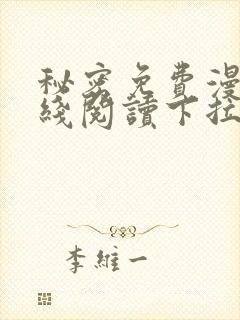 秘密免費漫
綫閱讀下拉
李維一